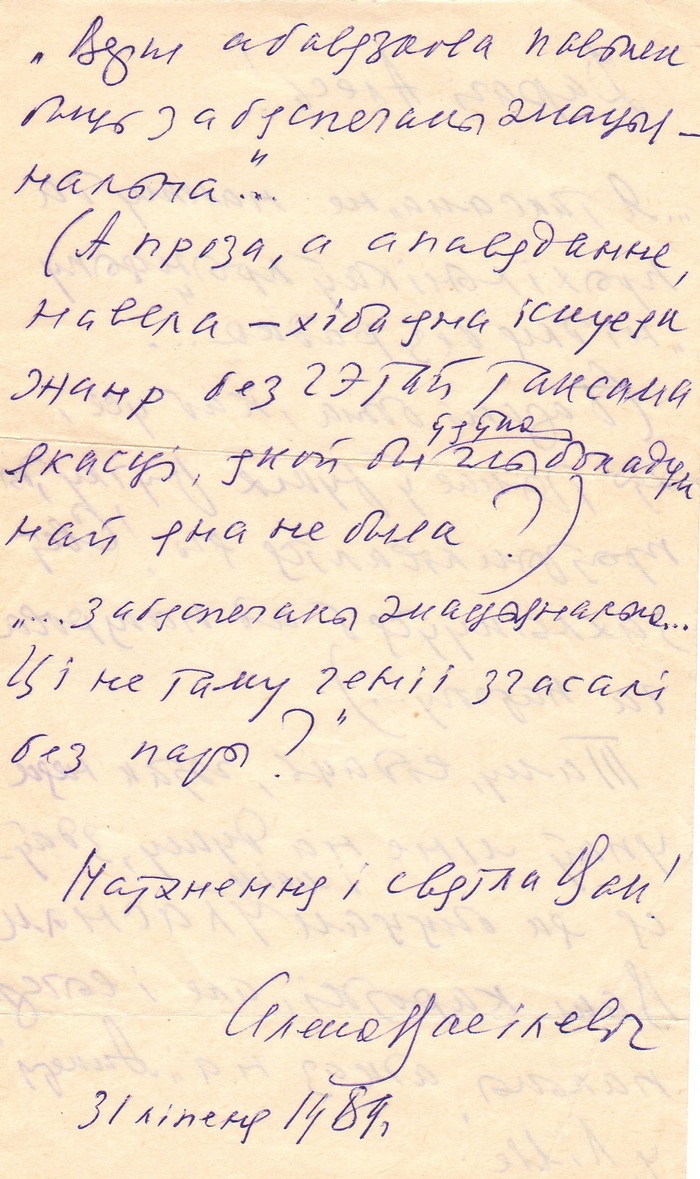 „Верш абавязкова павінен
быць забяспечаны эмацы–
нальна"...
(А проза, а апавяданне,
навела – хіба яна існуе як
жанр без гэтай таксама
якасці, якой бы
най яна не была?)
„... забяспечаны эмацыянальна...
Ці не таму геніі згасалі
без пары?"
Натхнення і святла Вам!
Алена Васілевіч
31 ліпеня 1989 г.